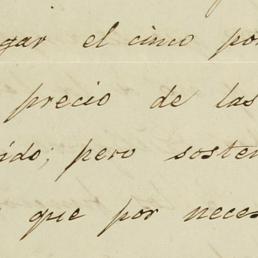 gar el cinco por
precio de las
ido; pero sosten
que por neces